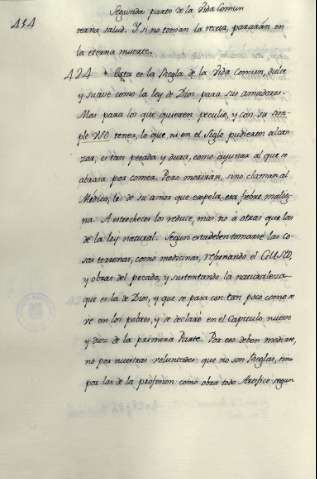 Segunda parte de la Vida Comun
414
terna salud. Y si no toman la receta, pararán en
la eterna muerte.
424 Esta es la Regla de la Vida Comun, dulce
y suave como la ley de Dios para sus amadores.
Mas para los que quieren peculio, y con su simple
USO tener, lo que ni en el Siglo pudieron alcan
zar, es tan pesada y dura, como ayunar al que se
abrasa por comer. Pero morirán, sino llaman al
Médico, le de su ansia que empela, esa fiebre malig
na. A estrecheces los reduce, mas no á otras que las
de la ley natural. Segun esta deben tomarse las co
sas terrenas, como medicinas, refrenando el
y obras del pecado, y sustentando la naturaleza
que es la de Dios, y que se pasa con tan poco como se
ve en los pobres, y se declaró en el Capitulo nueve
y diez de la primera Parte. Por eso deben medirse,
no por nuestras voluntades que no son Reglas, sino
por las de la profesion como obra todo Artifice segun